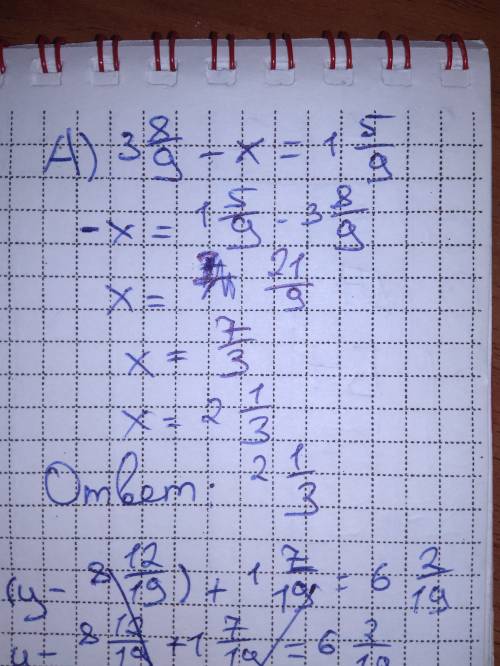 А) 3 8/9 - x = 1 5/9
- x = 1 5/9 - 3 8/9
x = 21/9
x = 7/3
x = 2 1/3
Ответ: 2 1/3
(y - 8 12/19) + 1 7/19 = 6 2/19
y - 8 12/19 + 1 7/19 = 6 2/19